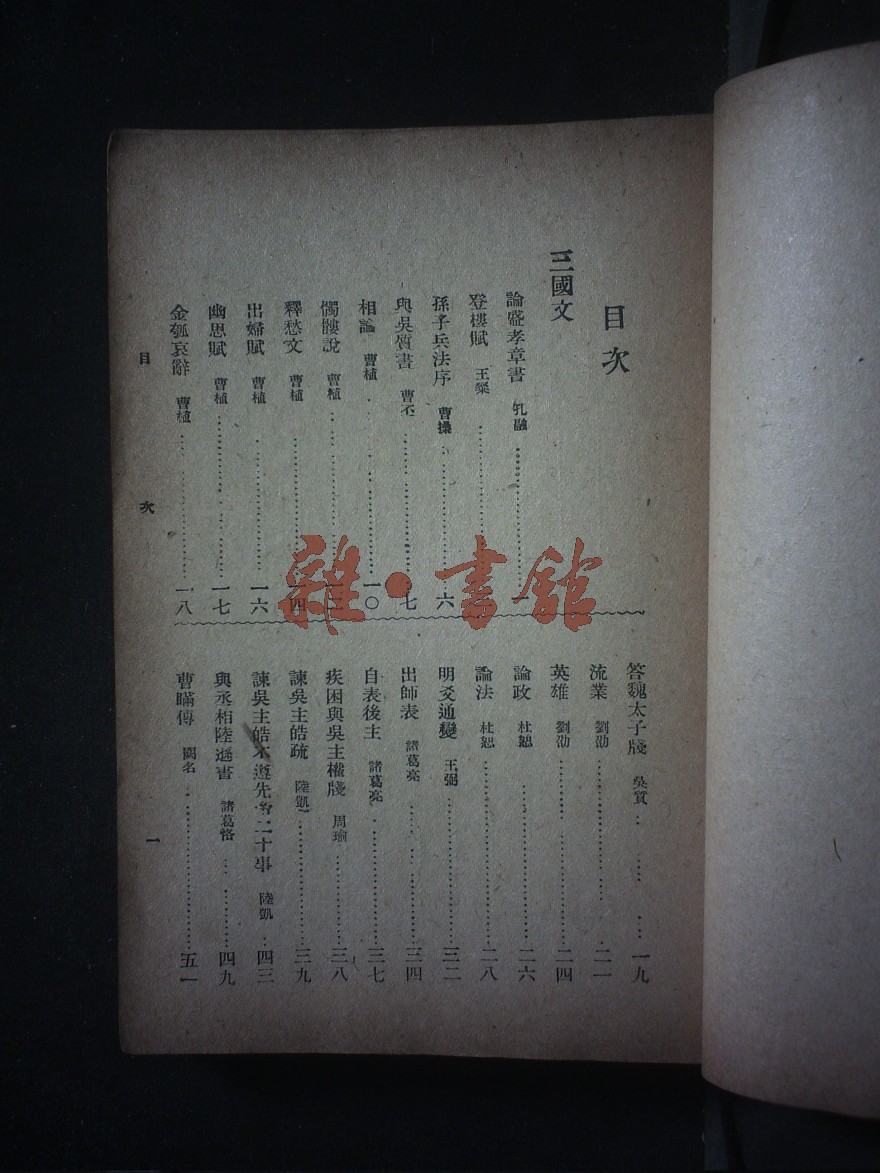 目次
三國文
論盛孝章書 孔融 一
登樓賦 王粲
孫子兵法序 曹操 六
與吳質書 曹丕 七
相論 曹植 一〇
髑髏說 曹植 一二
釋愁文 曹植 一四
出婦賦 曹植 一六
幽思賦 曹植 一七
金瓠哀辭 曹植 一八
答魏太子牋 吳質 一九
流業 劉劭 二一
英雄 劉劭 二四
論政 杜恕 二六
論法 杜恕 二八
明爻通變 王弼 三二
出師表 諸葛亮 三四
自表後主 諸葛亮 三七
疾困與吳主權牋 周瑜 三八
諫吳主皓疏 陸凱 三九
諫吳主皓不遵先帝二十事 陸凱 四三
與丞相陸遜書 諸葛恪 四九
曹瞞傳 闕名 五一
目次 一
雜·書館